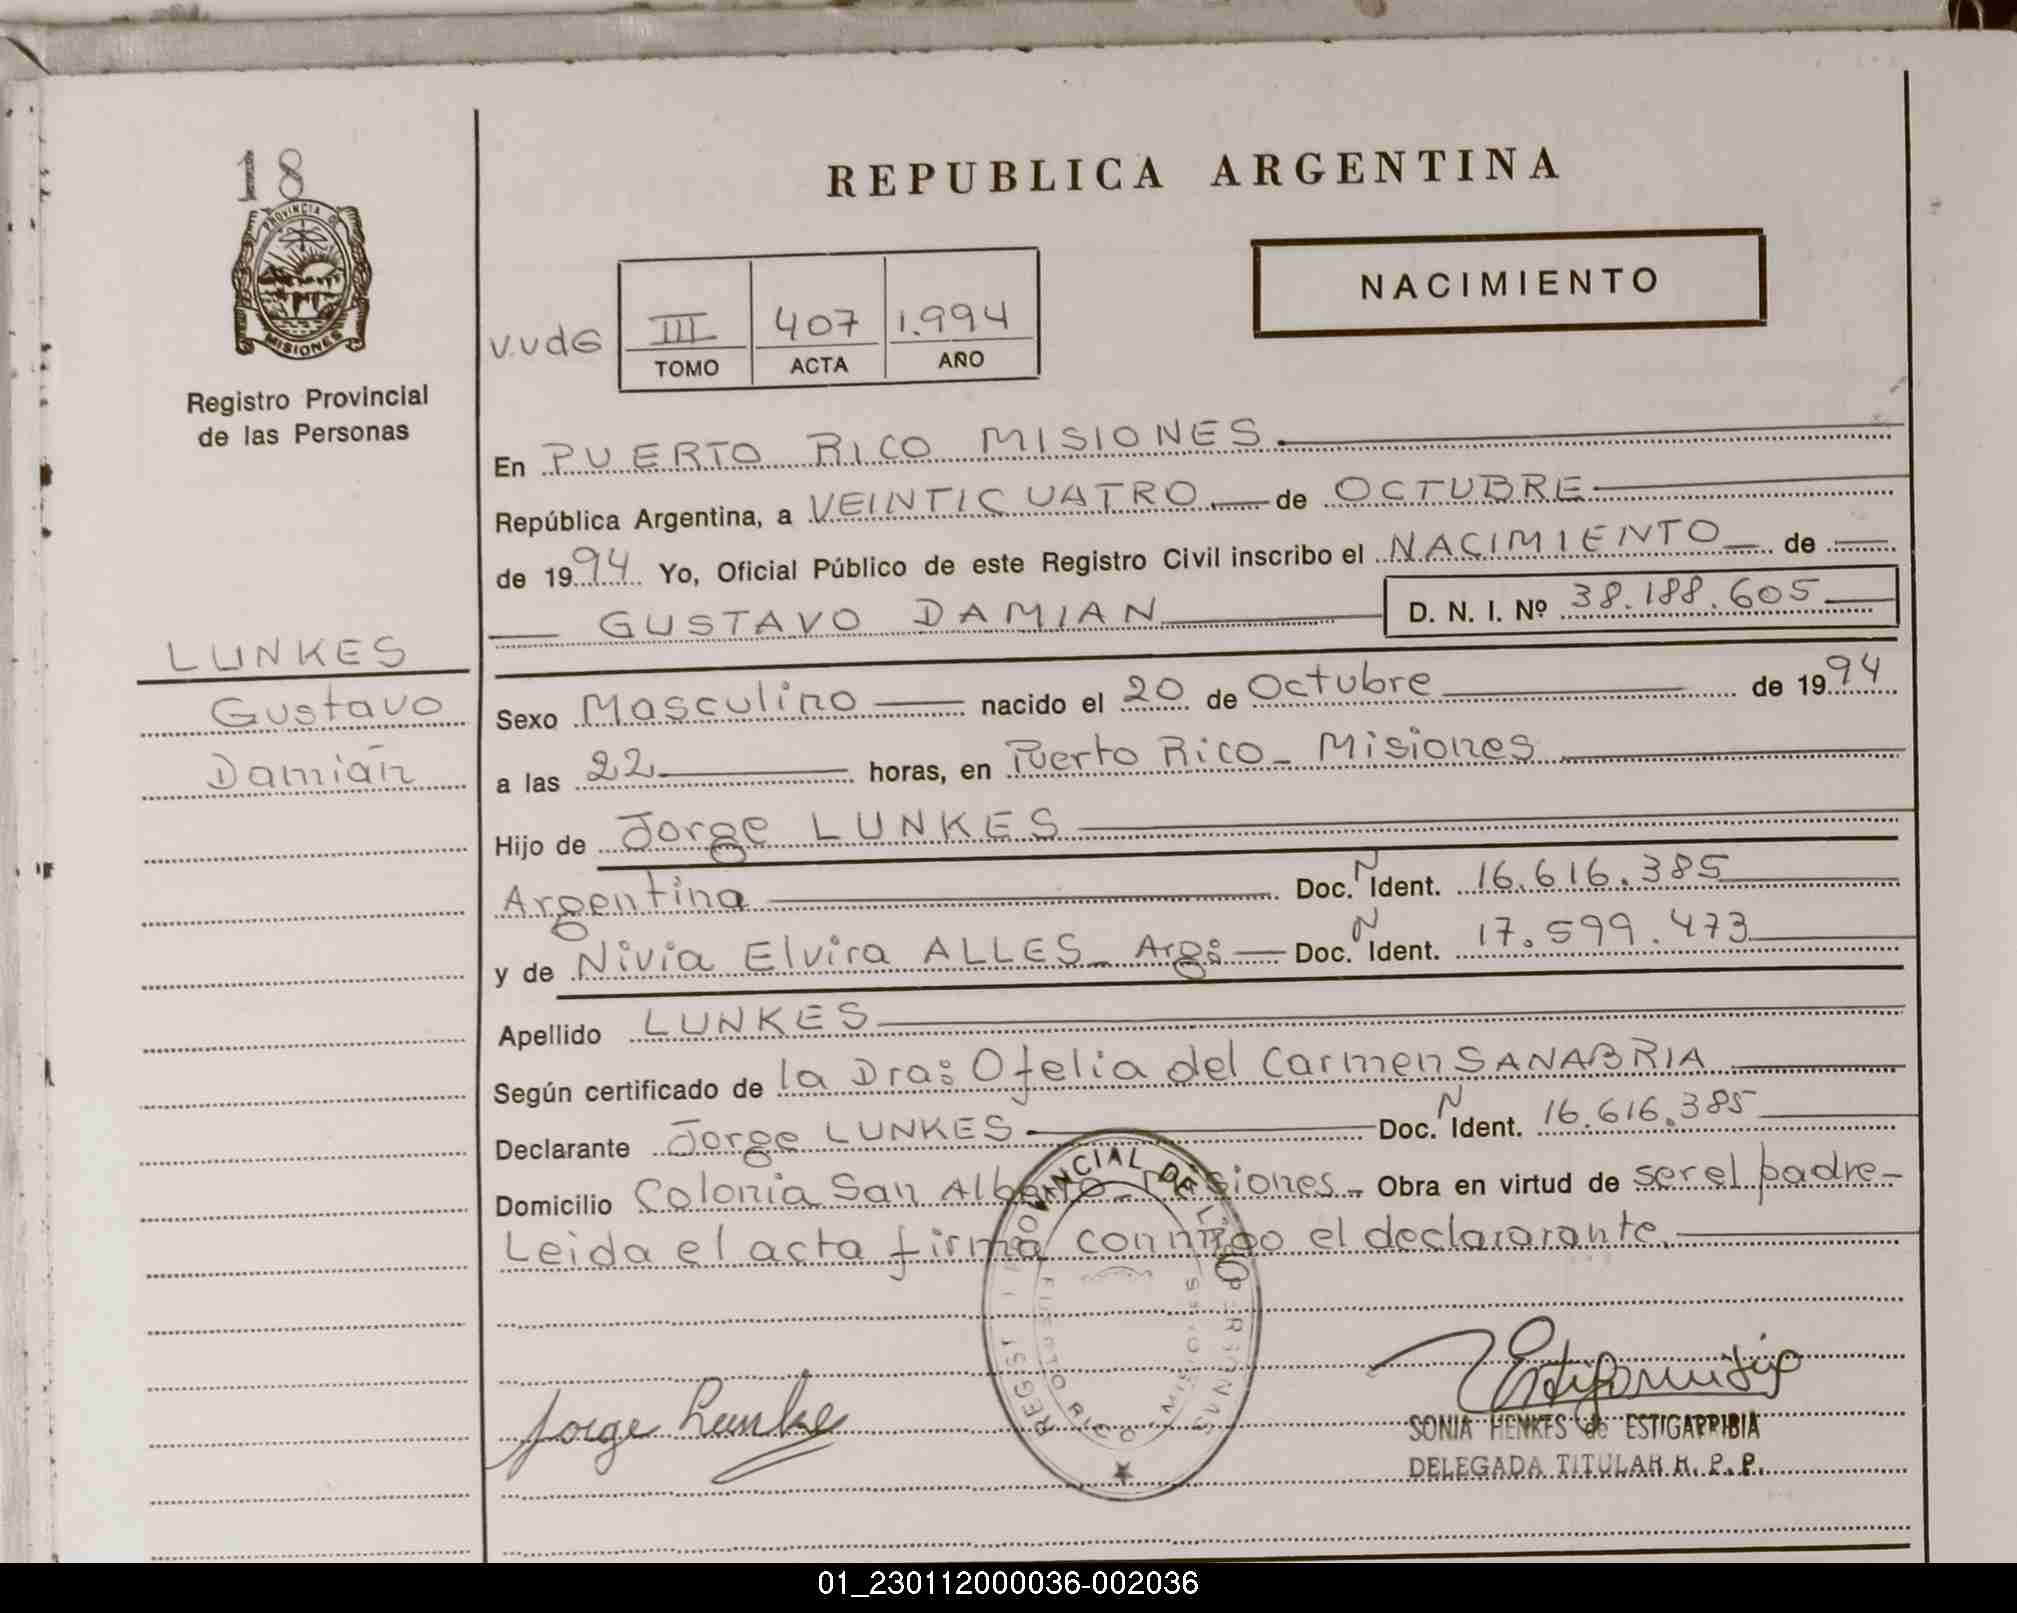 18
PROVINCIA DE
MISIONES
Registro Provincial
de las Personas
LUNKES
Gustavo
Damián
REPUBLICA ARGENTINA
NACIMIENTO
V.UdG
III 407 1.994
TOMO ACTA AÑO
En PUERTO RICO MISIONES
República Argentina, a VEINTICUATRO de OCTUBRE
de 1994 Yo, Oficial Público de este Registro Civil inscribo el NACIMIENTO de
GUSTAVO DAMIAN D. N. I. Nº 38.188.605
Sexo Masculino nacido el 20 de Octubre de 1994
a las 22 horas, en Puerto Rico - Misiones
Hijo de Jorge LUNKES
Argentina Doc. N Ident. 16.616.385
y de Nivia Elvira ALLES - Arg: Doc. N Ident. 17.599.473
Apellido LUNKES
Según certificado de la Dra: Ofelia del Carmen SANABRIA
Declarante Jorge LUNKES Doc. N Ident. 16.616.385
Domicilio Colonia San Alberto - Misiones - Obra en virtud de ser el padre -
Leida el acta firma conmigo el declararante.
REGISTRO PROVINCIAL DE LAS PERSONAS
PUERTO RICO MISIONES
Jorge Lunkes
SONIA HENKES de ESTIGARRIBIA
DELEGADA TITULAR R. P. P.
01_230112000036-002036